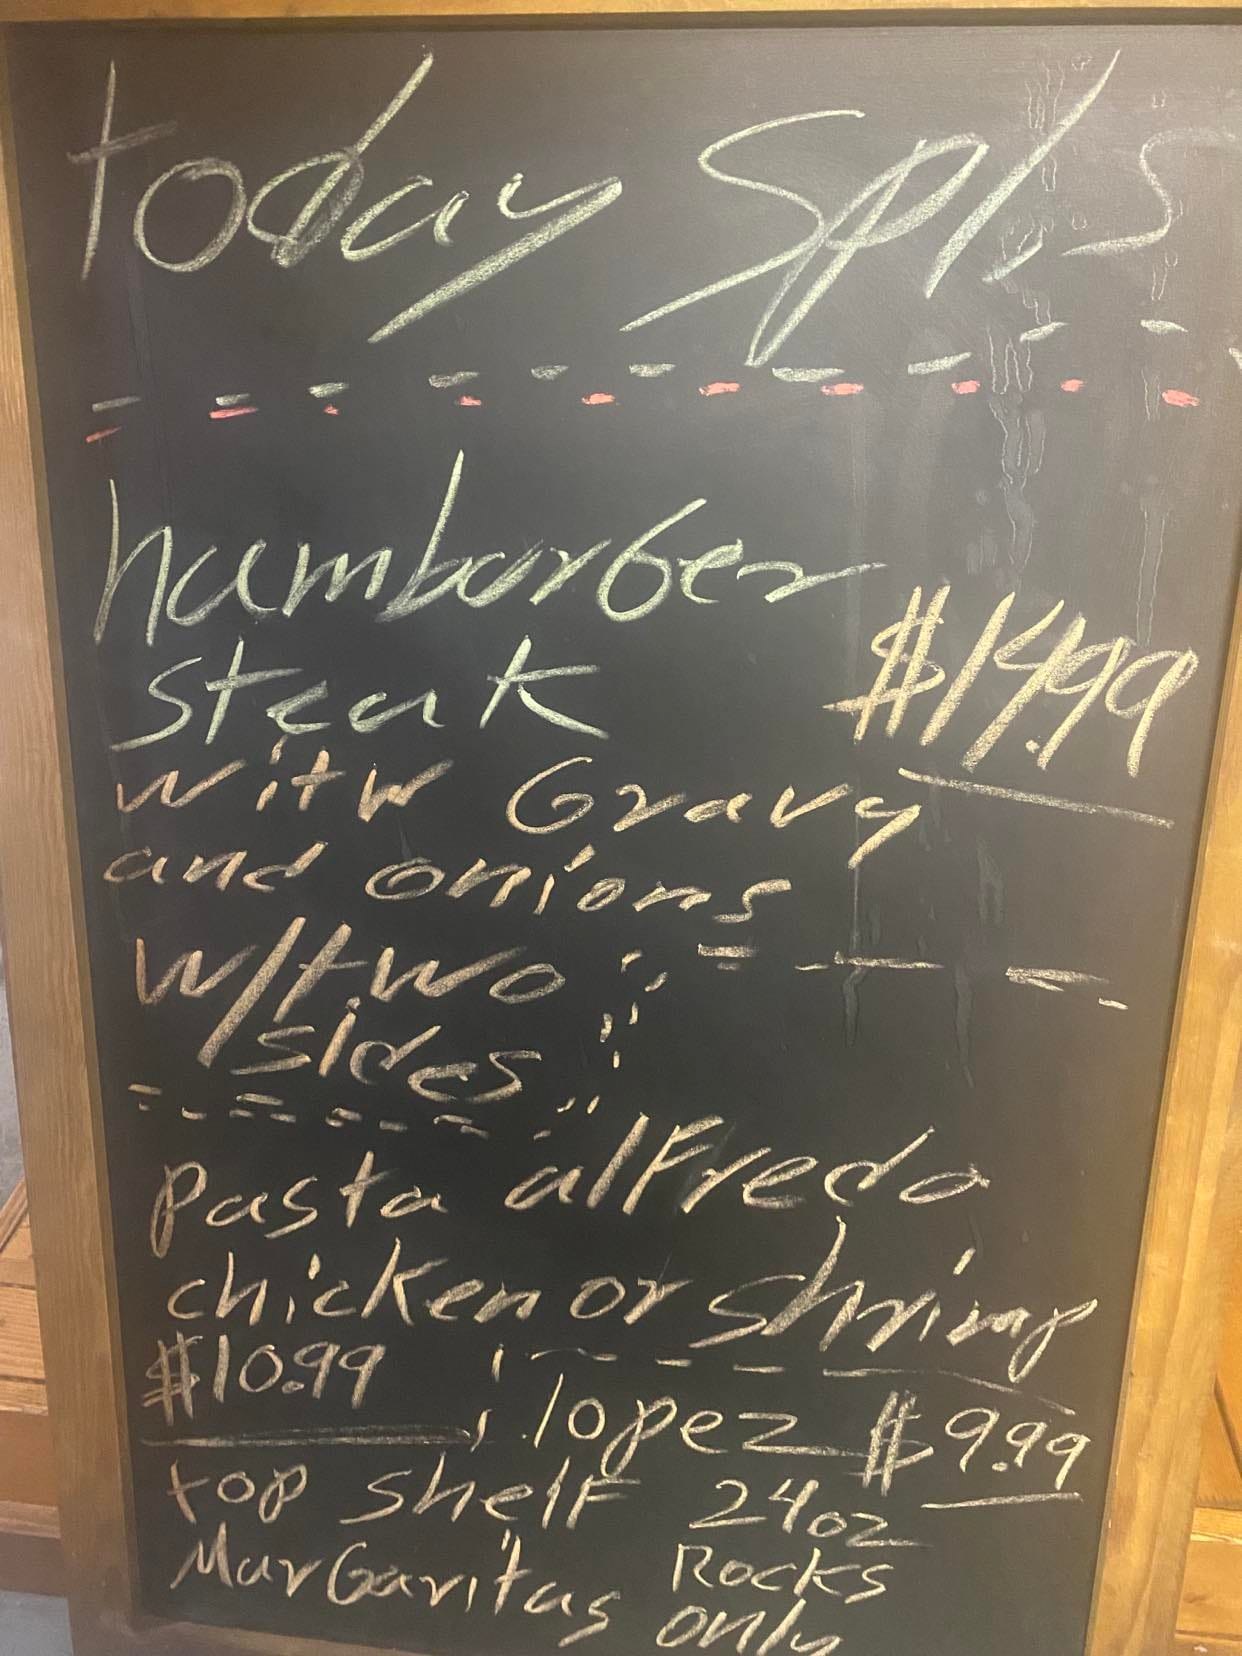 today Spl's
hamburger
steak $14.99
with Gravy
and onions
w/two
sides
Pasta alfredo
chicken or shrimp
$10.99
lopez $9.99
top shelf 24oz
Margaritas Rocks
only